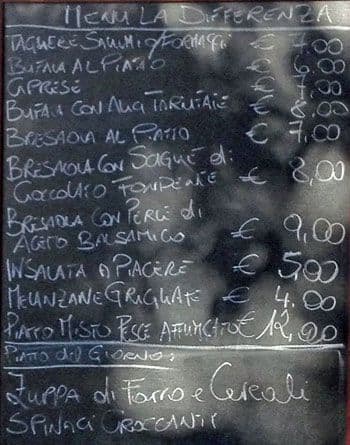 MENU LA DIFFERENZA
TAGLIERE SALUMI O FORMAGGI € 7,00
BUFALA AL PIATTO € 6,00
CAPRESE € 7,00
BUFALA CON ALICI TARTUFATE € 8,00
BRESAOLA AL PIATTO € 7,00
BRESAOLA CON SCAGLIE di
CIOCCOLATO FONDENTE € 8,00
BRESAOLA CON PERLE di
ACETO BALSAMICO € 9,00
INSALATA A PIACERE € 5,00
MELANZANE GRIGLIATE € 4,00
PIATTO MISTO PESCE AFFUMICATO € 12,00
PIATTO DEL GIORNO:
ZUPPA di FARRO e CEREALI
SPINACI CROCCANTI